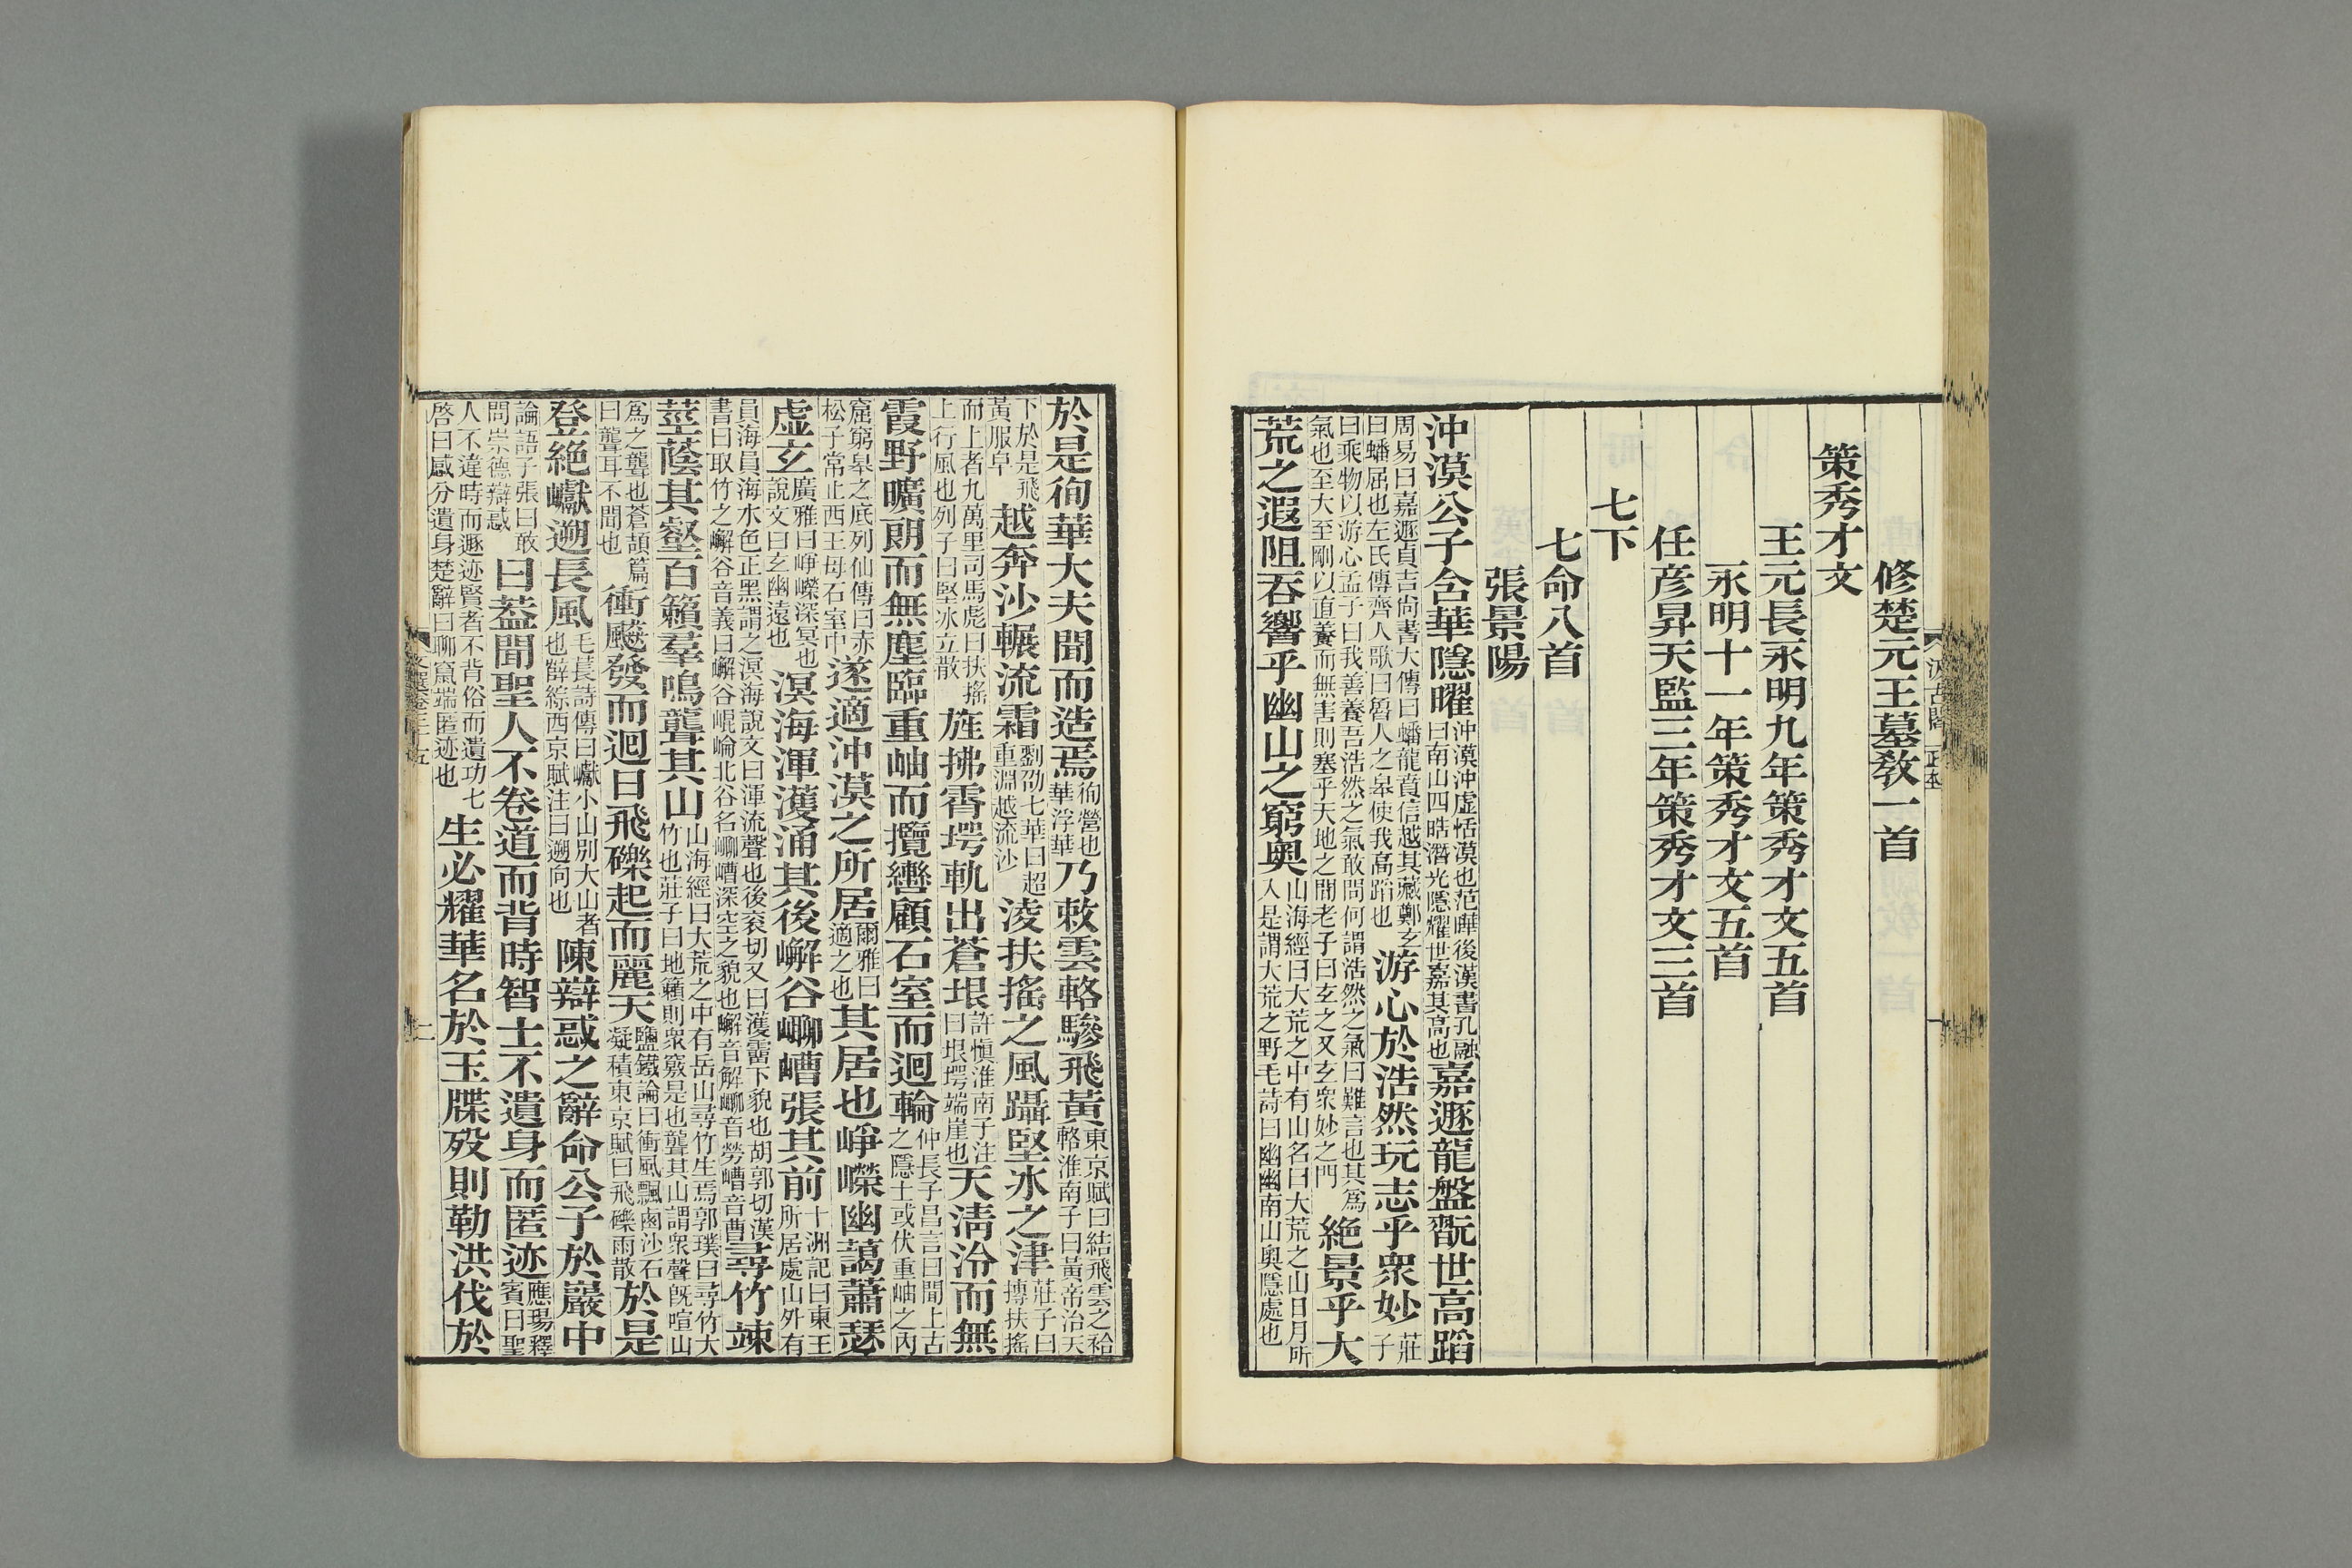 修楚元王墓教一首
策秀才文
王元長永明九年策秀才文五首
永明十一年策秀才文五首
任彦昇天監三年策秀才文三首
七下
七命八首
張景陽
沖漠公子含華隱曜沖漠沖虚恬漠也范曄後漢書孔融曰南山四晧潛光隱耀世嘉其高也嘉遯龍盤翫世高蹈
周易曰嘉遯貞吉尚書大傳曰蟠龍賁信越其藏鄭玄曰蟠屈也左氏傳齊人歌曰魯人之皐使我高蹈也游心於浩然玩志乎衆妙莊子
曰乘物以游心孟子曰我善養吾浩然之氣敢問何謂浩然之氣曰難言也其爲氣也至大至剛以直養而無害則塞乎天地之間老子曰玄之又玄衆妙之門絶景乎大
荒之遐阻吞響乎幽山之窮奥山海經曰大荒之中有山名曰大荒之山日月所入是謂大荒之野毛詩曰幽幽南山奥隱處也
汲古閣
於是徇華大夫聞而造焉徇營也華浮華乃敕雲輅驂飛黃東京賦曰結飛雲之袷輅淮南子曰黃帝治天
下於是飛黃服阜越奔沙輾流霜劉劭七華曰超重淵越流沙淩扶搖之風躡堅冰之津莊子曰摶扶搖
而上者九萬里司馬彪曰扶搖上行風也列子曰堅冰立散旌拂霄堮軌出蒼垠許慎淮南子注曰垠堮端崖也天清泠而無
霞野曠朗而無塵臨重岫而攬轡顧石室而迴輪仲長子昌言曰聞上古之隱士或伏重岫之內
窟窮皋之底列仙傳曰赤松子常止西王母石室中遂適沖漠之所居爾雅曰適之也其居也崢嶸幽藹蕭瑟
虚玄廣雅曰崢嶸深冥也說文曰玄幽遠也溟海渾濩涌其後嶰谷嶆嶆張其前十洲記曰東王所居處山外有
員海員海水色正黑謂之溟海說文曰渾流聲也後袞切又曰濩霤下貌也胡郭切漢書曰取竹之嶰谷音義曰嶰谷崐崘北谷名嶆嶆深空之貌也嶰音解嶆音勞嶆音曹尋竹竦
莖蔭其壑百籟羣鳴聾其山山海經曰大荒之中有岳山尋竹生焉郭璞曰尋竹大竹也莊子曰地籟則衆竅是也聾其山謂衆聲旣喧山
爲之聾也蒼頡篇曰聾耳不聞也衝飈發而迴日飛礫起而麗天鹽鐵論曰衝風飄鹵沙石凝積東京賦曰飛礫雨散於是
登絶巘遡長風毛萇詩傳曰巘小山別大山者也薛綜西京賦注曰遡向也陳辯惑之辭命公子於巖中
論語子張曰敢問崇德辯惑曰葢聞聖人不卷道而背時智士不遺身而匿迹應瑒釋賓曰聖
人不違時而遯迹賢者不背俗而遺功七啓曰感分遺身楚辭曰聊竄端匿迹也生必耀華名於玉牒歿則勒洪伐於
文選卷三十五
二